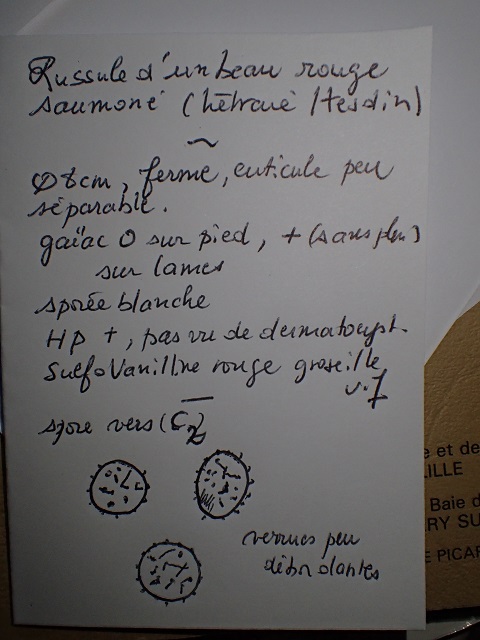 Russule d'un beau rouge
saumoné (hêtraie Hesdin)
~
Ø 8cm, ferme, cuticule peu
séparable.
gaïac O sur pied, + (sans plus)
sur lames
sporée blanche
Hp +, pas vu de dermatocyst.
SulfoVanilline rouge groseille
spore vers
verrues peu
débordantes
e et de
LILLE
Baie d
RY SU
E PICAR